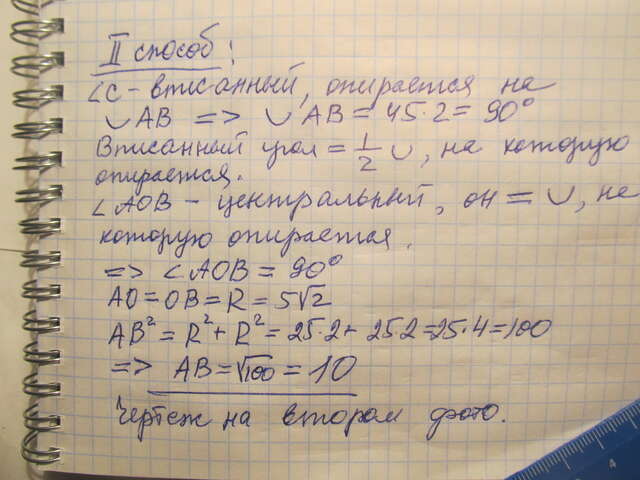 II способ:
∠C - вписанный, опирается на
◡ AB => ◡ AB = 45·2 = 90°
Вписанный угол = 1/2 ◡, на которую
опирается.
∠AOB - центральный, он = ◡, на
которую опирается.
=> ∠AOB = 90°
AO = OB = R = 5√2
AB² = R² + R² = 25·2 + 25·2 = 25·4 = 100
=> AB = √100 = 10
Чертеж на втором фото.
4